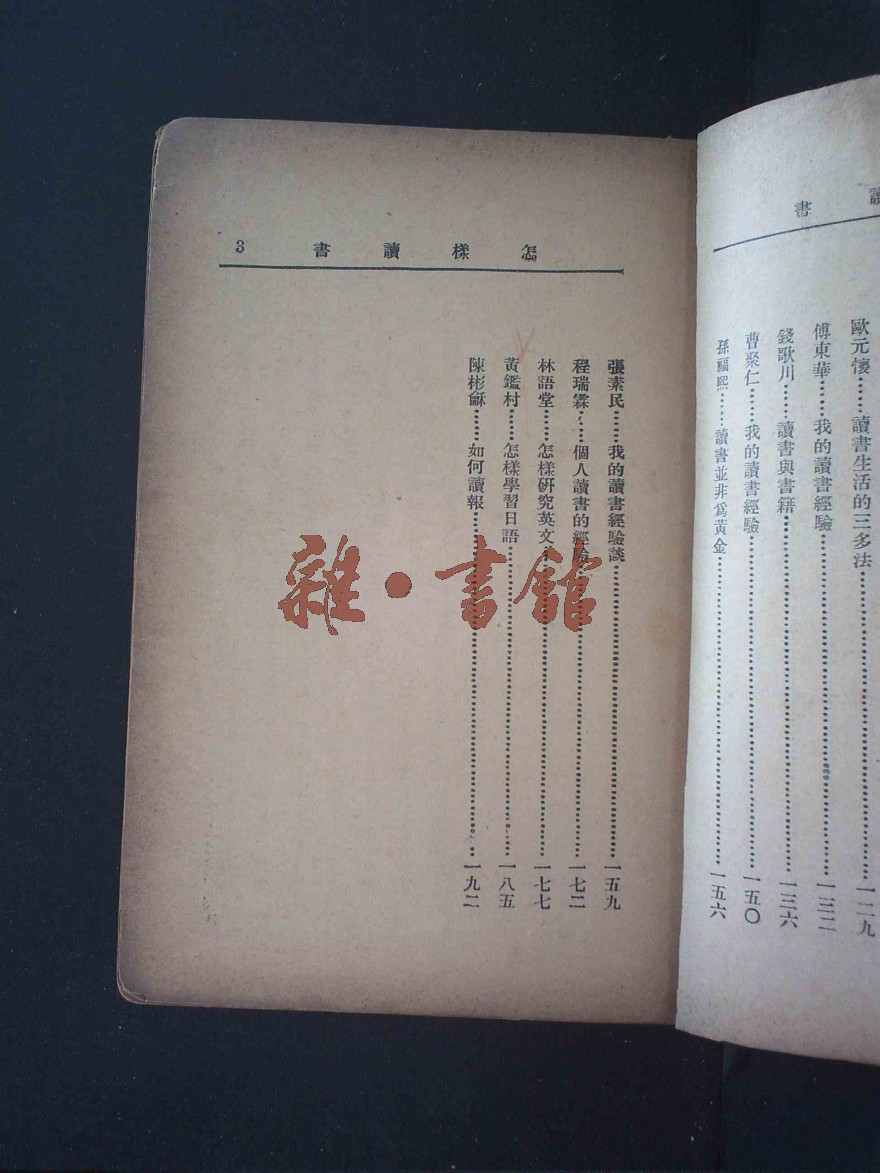 讀書
歐元懷……讀書生活的三多法……一二九
傅東華……我的讀書經驗……一三二
錢歌川……讀書與書籍……一三六
曹聚仁……我的讀書經驗……一五〇
孫福熙……讀書並非爲黃金……一五六
怎樣讀書 3
張素民……我的讀書經驗談……一五九
程瑞霖……個人讀書的經驗……一七二
林語堂……怎樣研究英文……一七七
黃鑑村……怎樣學習日語……一八五
陳彬龢……如何讀報……一九二
雜·書館